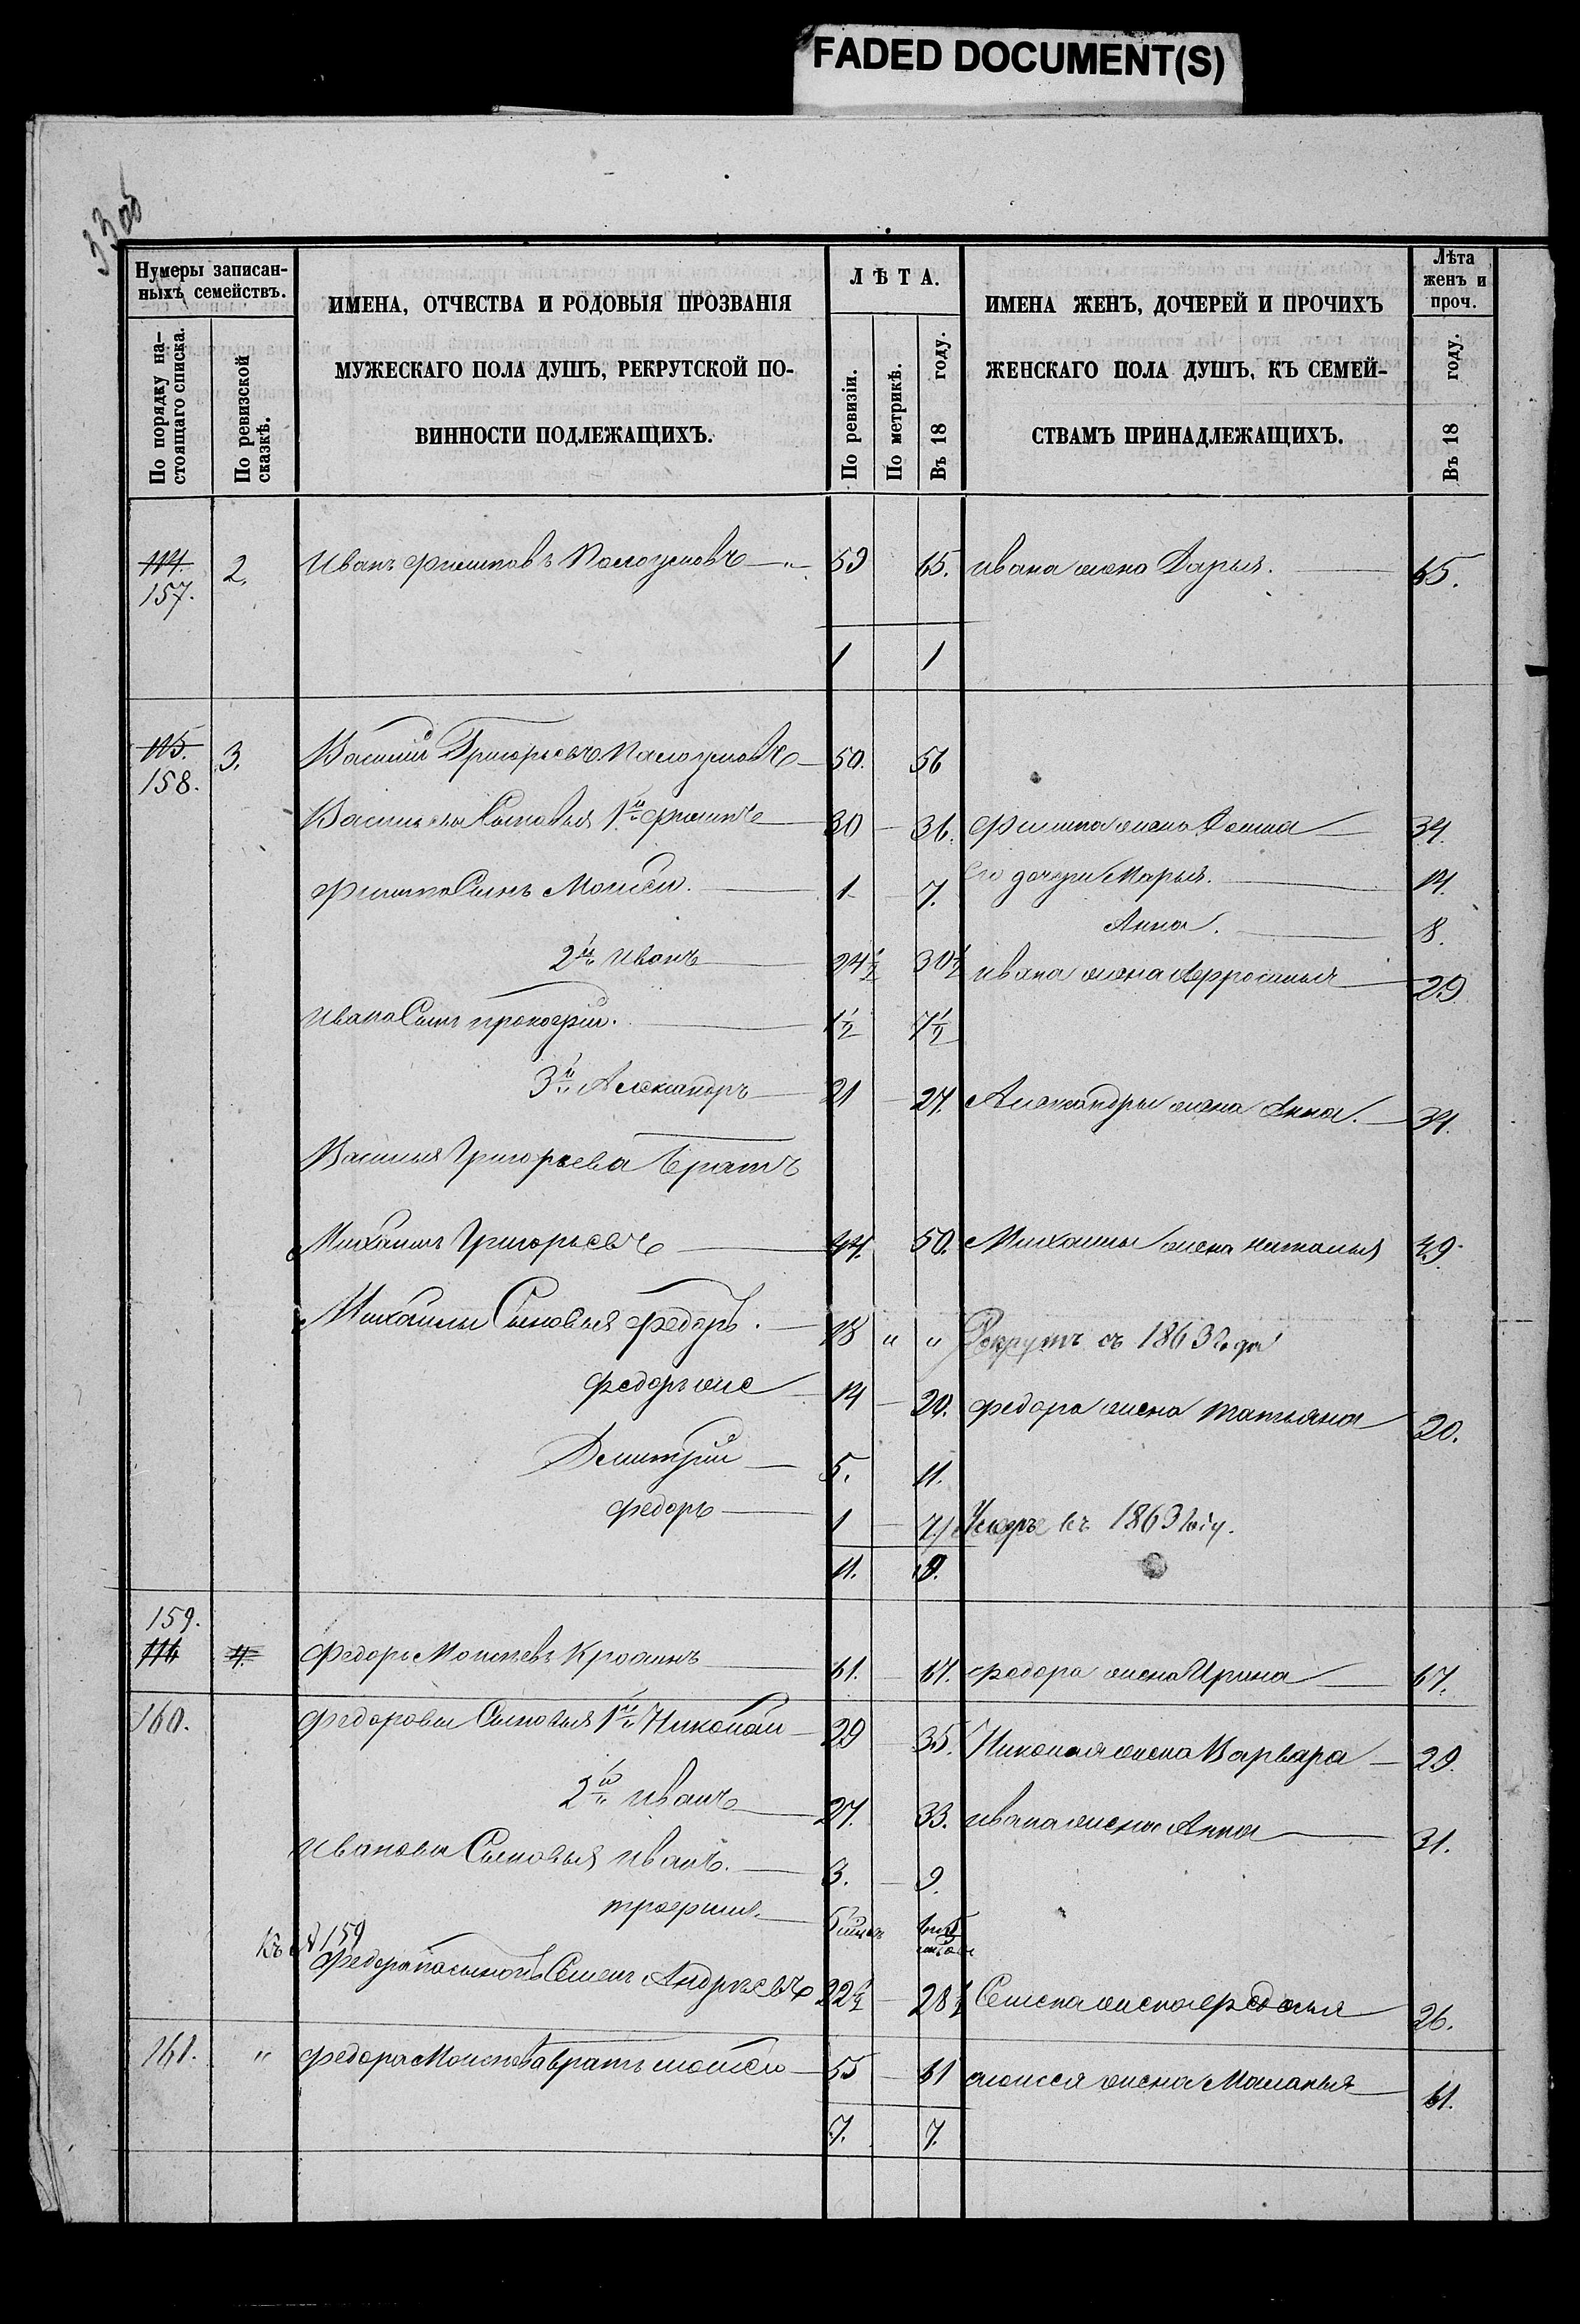 FADED DOCUMENT(S)
Нумеры записан-
ныхъ семействъ.
По порядку на-
стоящаго списка.
По ревизской
сказкѣ.
ИМЕНА, ОТЧЕСТВА И РОДОВЫЯ ПРОЗВАНІЯ
МУЖЕСКАГО ПОЛА ДУШЪ, РЕКРУТСКОЙ ПО-
ВИННОСТИ ПОДЛЕЖАЩИХЪ.
ЛѢТА.
По ревизіи.
По метрикѣ.
Въ 18 году.
ИМЕНА ЖЕНЪ, ДОЧЕРЕЙ И ПРОЧИХЪ
ЖЕНСКАГО ПОЛА ДУШЪ, КЪ СЕМЕЙ-
СТВАМЪ ПРИНАДЛЕЖАЩИХЪ.
Лѣта
женъ и
проч.
Въ 18 году.
114. 2. Иванъ Филиповъ 59 65. Ивана жена Дарья. 65.
157.
1 1
115. 3. Василій Григорьевъ 50. 56
158.
Васильевы Сыновья 1й Филипъ 30 36. Филипа жена 34.
Филипа Сынъ Моисей. 1 7. Его дочери Марья. 14.
Анна. 8.
2й Иванъ 24½ 30½ Ивана жена 29
Ивана Сынъ Прокофій. 1½ 7½
3й Александръ 21 27. Александры жена Анна. 34.
Василья Григорьева Братъ
Михаилъ Григорьевъ 44. 50. Михаилы жена Наталья 49.
Михаилы Сыновья Федоръ. 18 " " Рекрутъ съ 1863 года
Федоръ же 14 20. Федора жена Татьяна 20.
Дмитрій 5. 11.
Федоръ 1 7) Умеръ въ 1863 году.
11. 9.
159.
116 4. Федоръ Моисеевъ 61. 67. Федора жена Ирина 67.
160. Федоровы Сыновья 1й Николай 29 35. Николая жена Варвара 29.
2й Иванъ 27. 33. Ивана жена Анна 31.
Ивановы Сыновья Иванъ. 3. 9.
Трофимъ.
Къ № 159
Федора пасынокъ Семенъ Андреевъ 22½ 28½ Семена жена Федосья 26.
161. " Федора Моисеева братъ Моисей 55 61 Моисея жена Маланья 61.
7. 7.